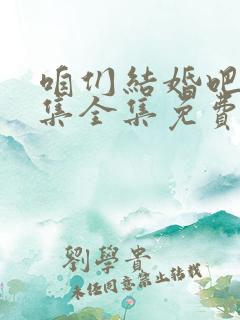 咱们結婚吧
集全集免費
劉學貴
未经同意禁止转载